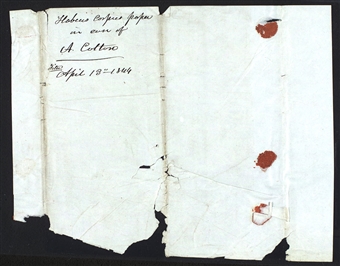 Habeus Corpus paper
in case of
A Colton
Filed
April 13th 1844